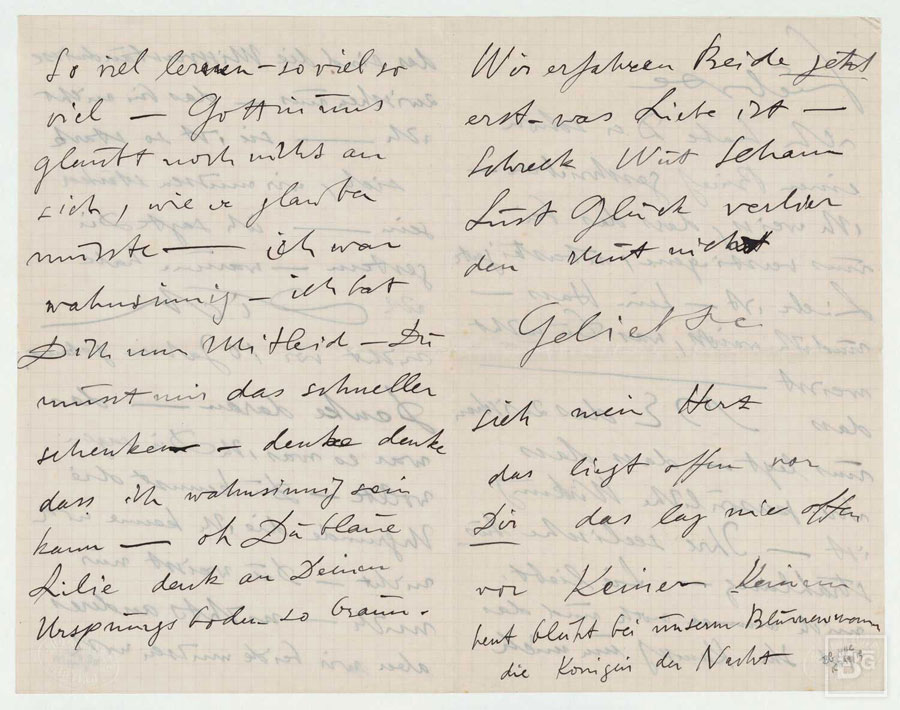 So viel lernen – so viel so
viel — Gott in uns
glaubt noch nichts an
sich, wie er glauben
müsste — ich war
wahnsinnig – ich bat
Dich um Mitleid – Du
musst mir das schneller
schenken – denke denke
dass ich wahnsinnig sein
kann — oh Du blaue
Lilie denk an Deinen
Ursprungsboden so braun.
Wir erfahren Beide jetzt
erst – was Liebe ist –
Schreck Wut Scham
Lust Glück verlier
den Mut nicht
Geliebte
sieh mein Herz
das liegt offen vor
Dir das lag nie offen
vor Keiner Keinem
heut blüht bei unserm Blumenmann
die Königin der Nacht